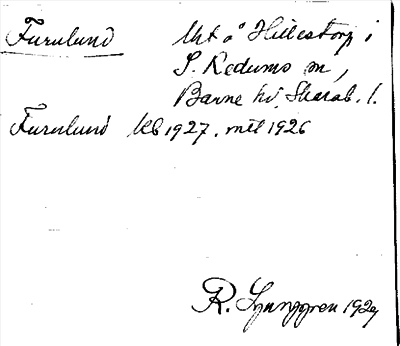 Furulund Utt å Hillestorp i
S. Kedums sn,
Barne hd, Skarab. l.
Furulund Kb 1927, mtl 1926
R. Ljunggren 1927